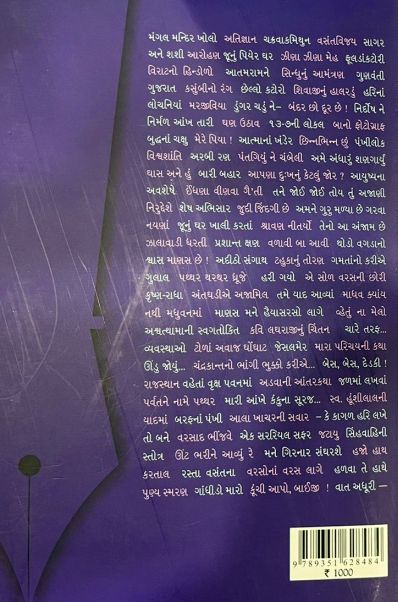 મંગલ મન્દિર ખોલો અતિજ્ઞાન ચક્રવાકમિથુન વસંતવિજય સાગર
અને શશી આરોહણ જૂનું પિયેર ઘર ઝીણા ઝીણા મેહ ફૂલડાંકટોરી
વિરાટનો હિન્ડોળો આતમરામને સિન્ધુનું આમંત્રણ ગુણવંતી
ગુજરાત કસુંબીનો રંગ છેલ્લો કટોરો શિવાજીનું હાલરડું હરિનાં
લોચનિયાં મરજીવિયા ડુંગર ચડું ને– બંદર છો દૂર છે ! નિર્દોષ ને
નિર્મળ આંખ તારી ઘણ ઉઠાવ ૧૩-૭ની લોકલ બાનો ફોટોગ્રાફ
બુદ્ધનાં ચક્ષુ મેરે પિયા ! આત્માનાં ખંડેર છિન્નભિન્ન છું પંખીલોક
વિશ્વશાંતિ અરબી રણ પંતગિયું ને ચંબેલી અમે અંધારું શણગાર્યું
ઘાસ અને હું બારી બહાર આપણા દુઃખનું કેટલું જોર ? આયુષ્યના
અવશેષે ઈંધણા વીણવા ગૈ'તી તને જોઈ જોઈ તોય તું અજાણી
નિરુદ્દેશે શેષ અભિસાર જુદી જિંદગી છે અમને ગુરુ મળ્યા છે ગરવા
નયણાં જૂનું ઘર ખાલી કરતાં શ્રાવણ નીતર્યો તેનો આ અંજામ છે
ઝાલાવાડી ધરતી પ્રશાન્ત ક્ષણ વળાવી બા આવી થોડો વગડાનો
શ્વાસ માણસ છે ! અદીઠો સંગાથ ટહુકાનું તોરણ ગમતાંનો કરીએ
ગુલાલ પથ્થર થરથર ધ્રૂજે હરી ગયો એ સોળ વરસની છોરી
કૃષ્ણ-રાધા અંતઘડીએ અજામિલ તમે યાદ આવ્યાં માધવ ક્યાંય
નથી મધુવનમાં માણસ મને હૈયાસરસો લાગે વ્હેતું ના મેલો
અશ્વત્થામાની સ્વગતોક્તિ કવિ લઘરાજીનું ચિંતન ચારે તરફ...
વ્યવસ્થાઓ ટોળાં અવાજ ઘોંઘાટ જેસલમેર મારા પરિચયની કથા
ઊંડું જોયું... ચંદ્રકાન્તનો ભાંગી ભુક્કો કરીએ... બેસ, બેસ, દેડકી!
રાજસ્થાન વહેતાં વૃક્ષ પવનમાં અડવાની આંતરકથા જળમાં લખવાં
પર્વતને નામે પથ્થર મારી આંખે કંકુના સૂરજ... સ્વ. હુંશીલાલની
યાદમાં બરફનાં પંખી આલા ખાચરની સવાર – કે કાગળ હરિ લખે
તો બને વરસાદ ભીંજવે એક સરરિયલ સફર જટાયુ સિંહવાહિની
સ્તોત્ર ઊંટ ભરીને આવ્યું રે મને ગિરનાર સંઘરશે હજો હાથ
કરતાલ રસ્તા વસંતના વરસોનાં વરસ લાગે હળવા તે હાથે
પુણ્ય સ્મરણ ગાંધીડો મારો કૂંચી આપો, બાઈજી ! વાત અધૂરી –
9 789351 628484
₹ 1000